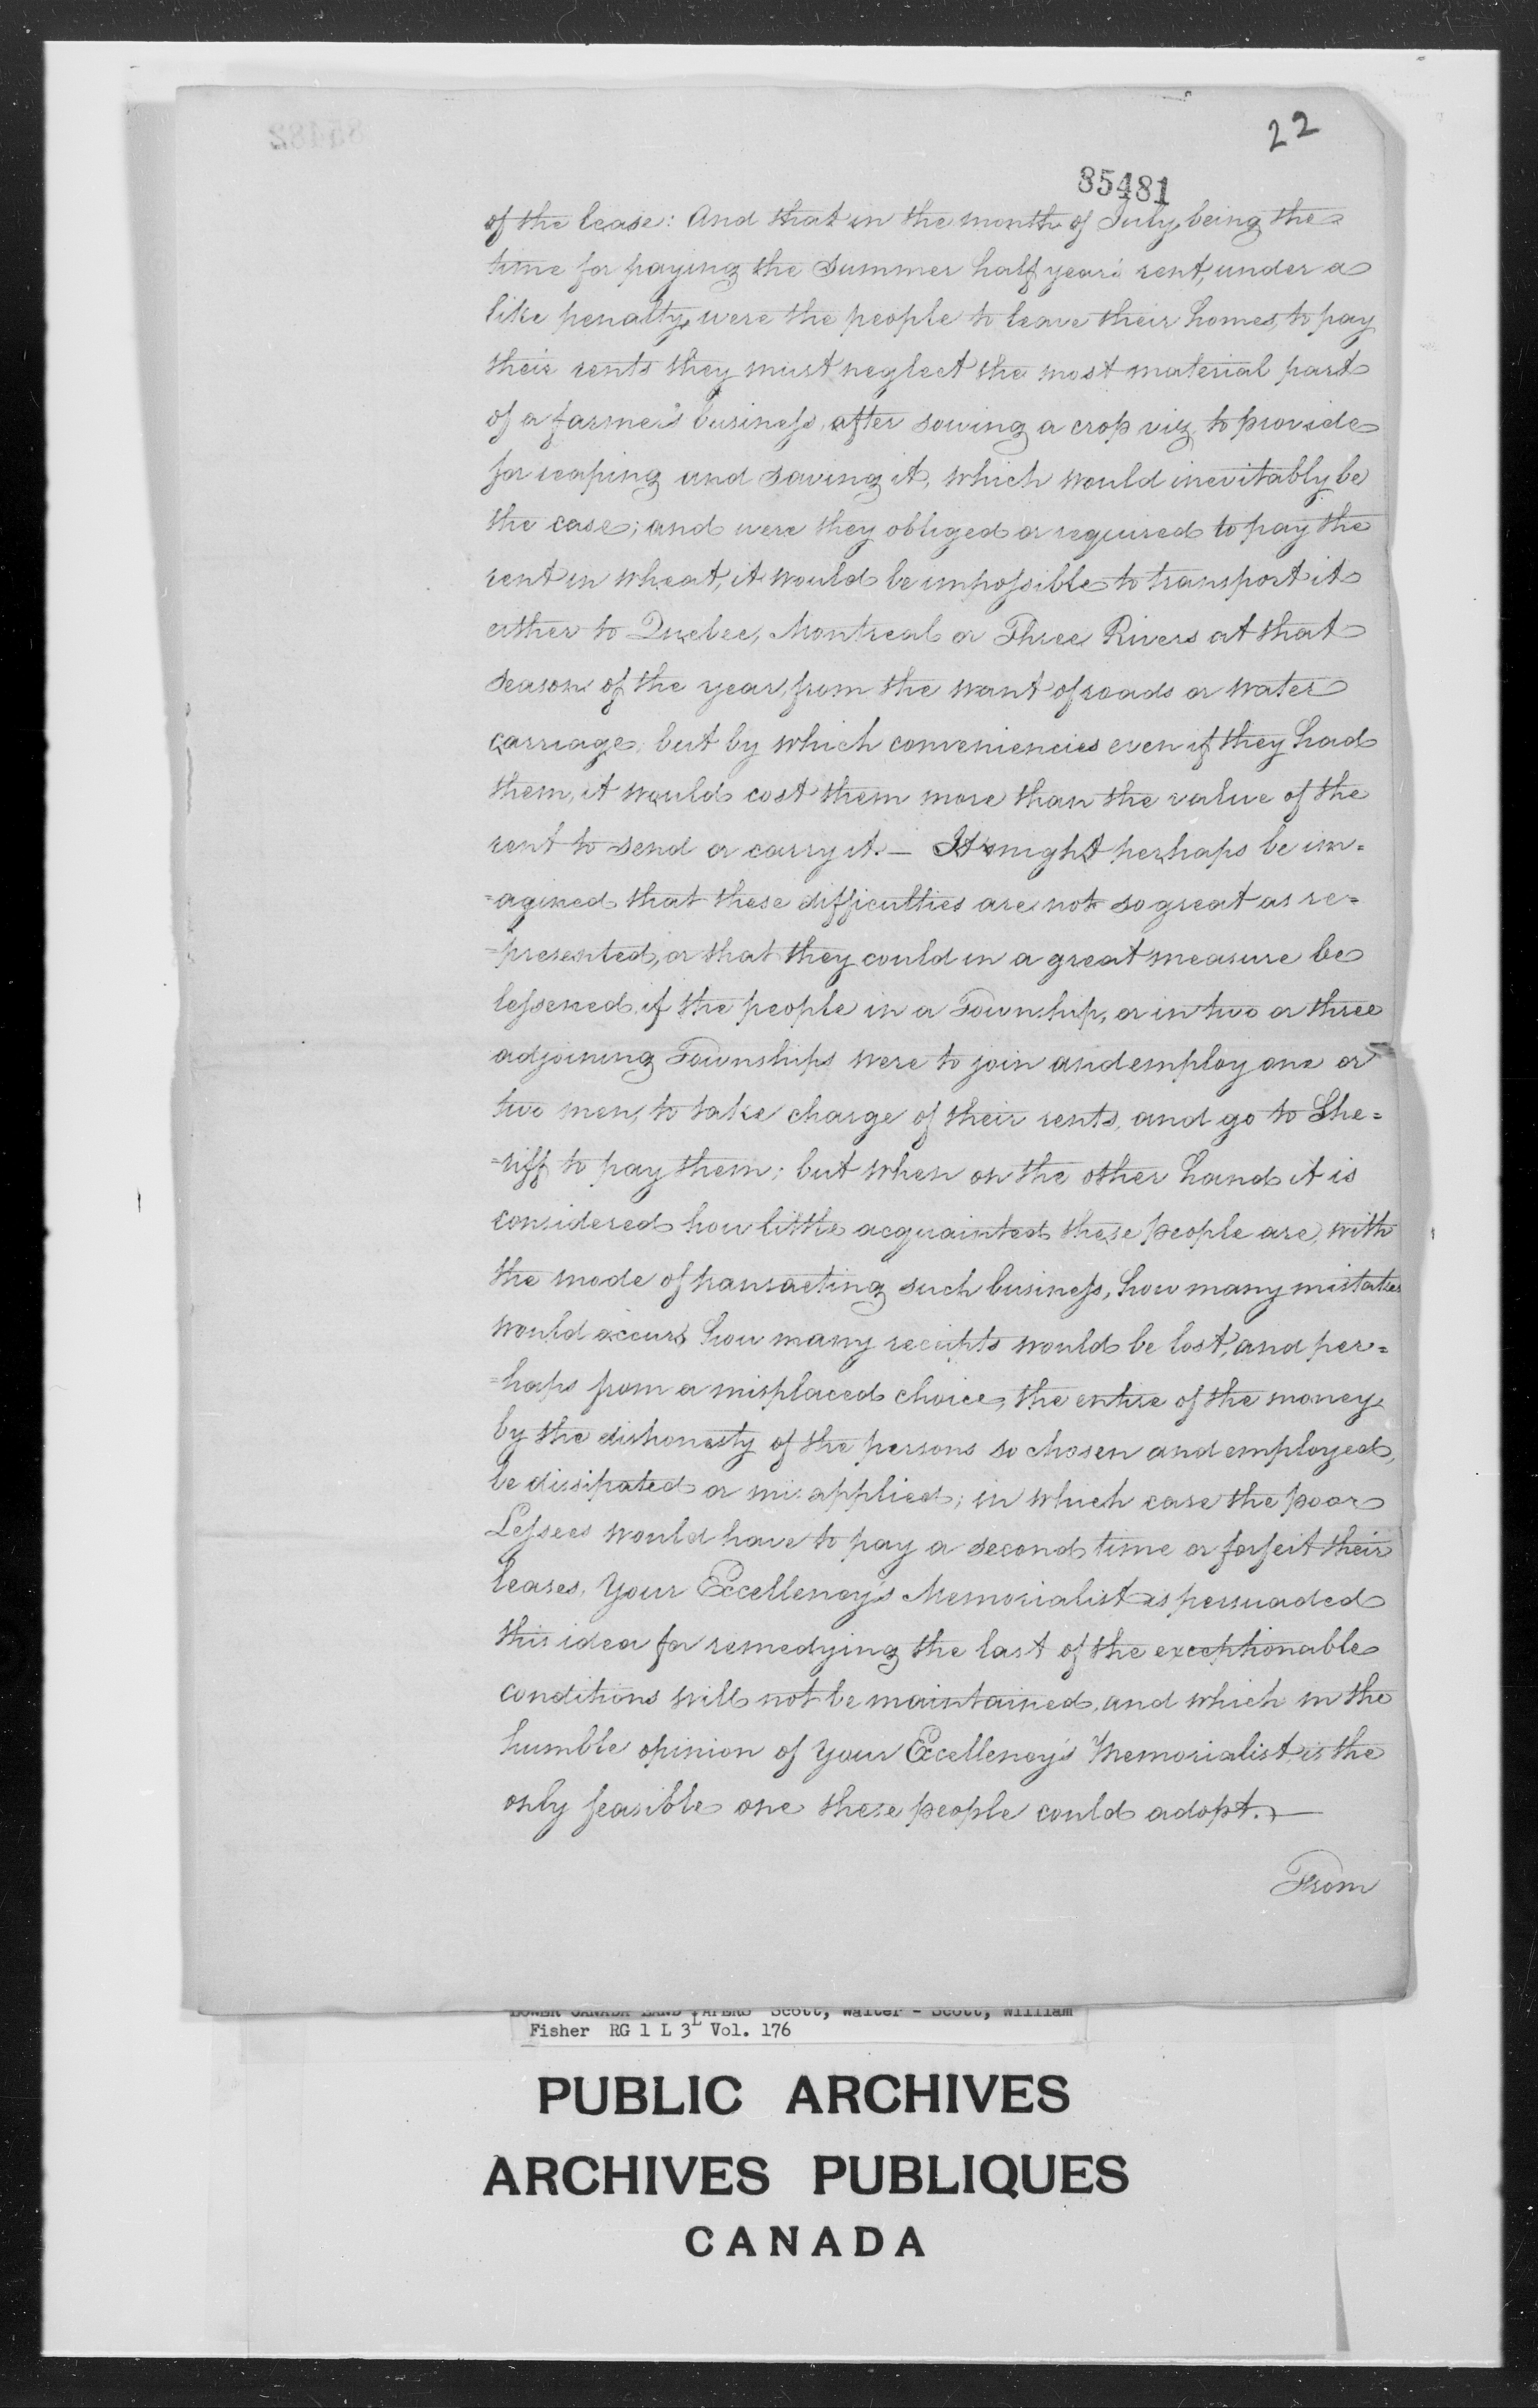 22
85481
of the lease: And that in the month of July, being the
time for paying the Summer half year's rent, under a
like penalty, were the people to leave their homes, to pay
their rents they must neglect the most material part
of a farmer's businefs, after sowing a crop viz. to provide
for reaping and saving it, which would inevitably be
the case; and were they obliged or required to pay the
rent in wheat, it would be impofsible to transport it
either to Quebec, Montreal or Three Rivers at that
season of the year, from the want of roads or water
carriage, but by which conveniencies even if they had
them, it would cost them more than the value of the
rent to send or carry it. — It might perhaps be im=
=agined that these difficulties are not so great as re=
=presented, or that they could in a great measure be
lefsened if the people in a Township, or in two or three
adjoining Townships were to join and employ one or
two men, to take charge of their rents, and go to She=
=riff to pay them; but when on the other hand it is
considered how little acquainted these people are, with
the mode of transacting such businefs, how many mistakes
would occur, how many receipts would be lost, and per=
=haps from a misplaced choice, the entire of the money
by the dishonesty of the persons so chosen and employed,
be dissipated or misapplied; in which case the poor
Lefsees would have to pay a second time or forfeit their
leases. Your Excellency's Memorialist is persuaded
this idea for remedying the last of the exceptionable
conditions will not be maintained, and which in the
humble opinion of Your Excellency's Memorialist, is the
only feasible one these people could adopt. —
From
LOWER CANADA LAND PAPERS Scott, Walter - Scott, William
Fisher RG 1 L 3L Vol. 176
PUBLIC ARCHIVES
ARCHIVES PUBLIQUES
CANADA